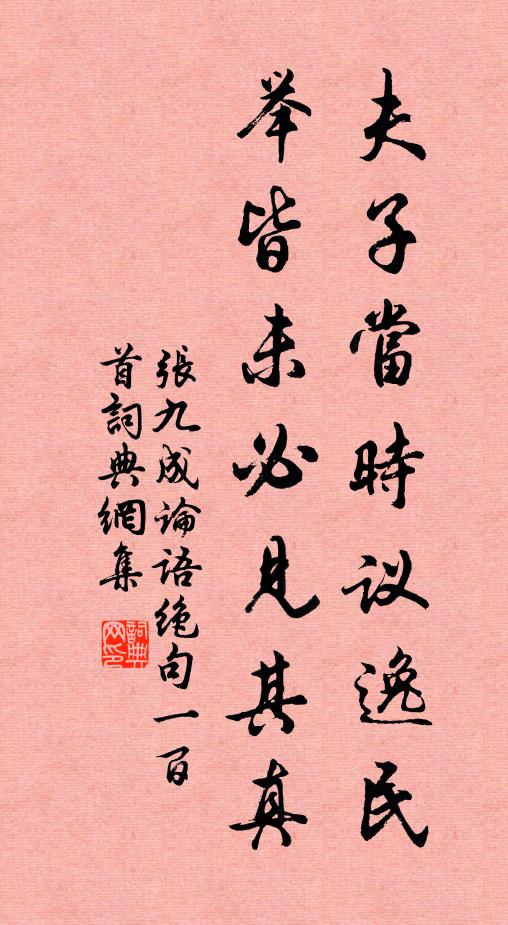 夫子當時议逸民
举皆未必见其真
張九成論語绝句一百
首詞典網集
詞典网印